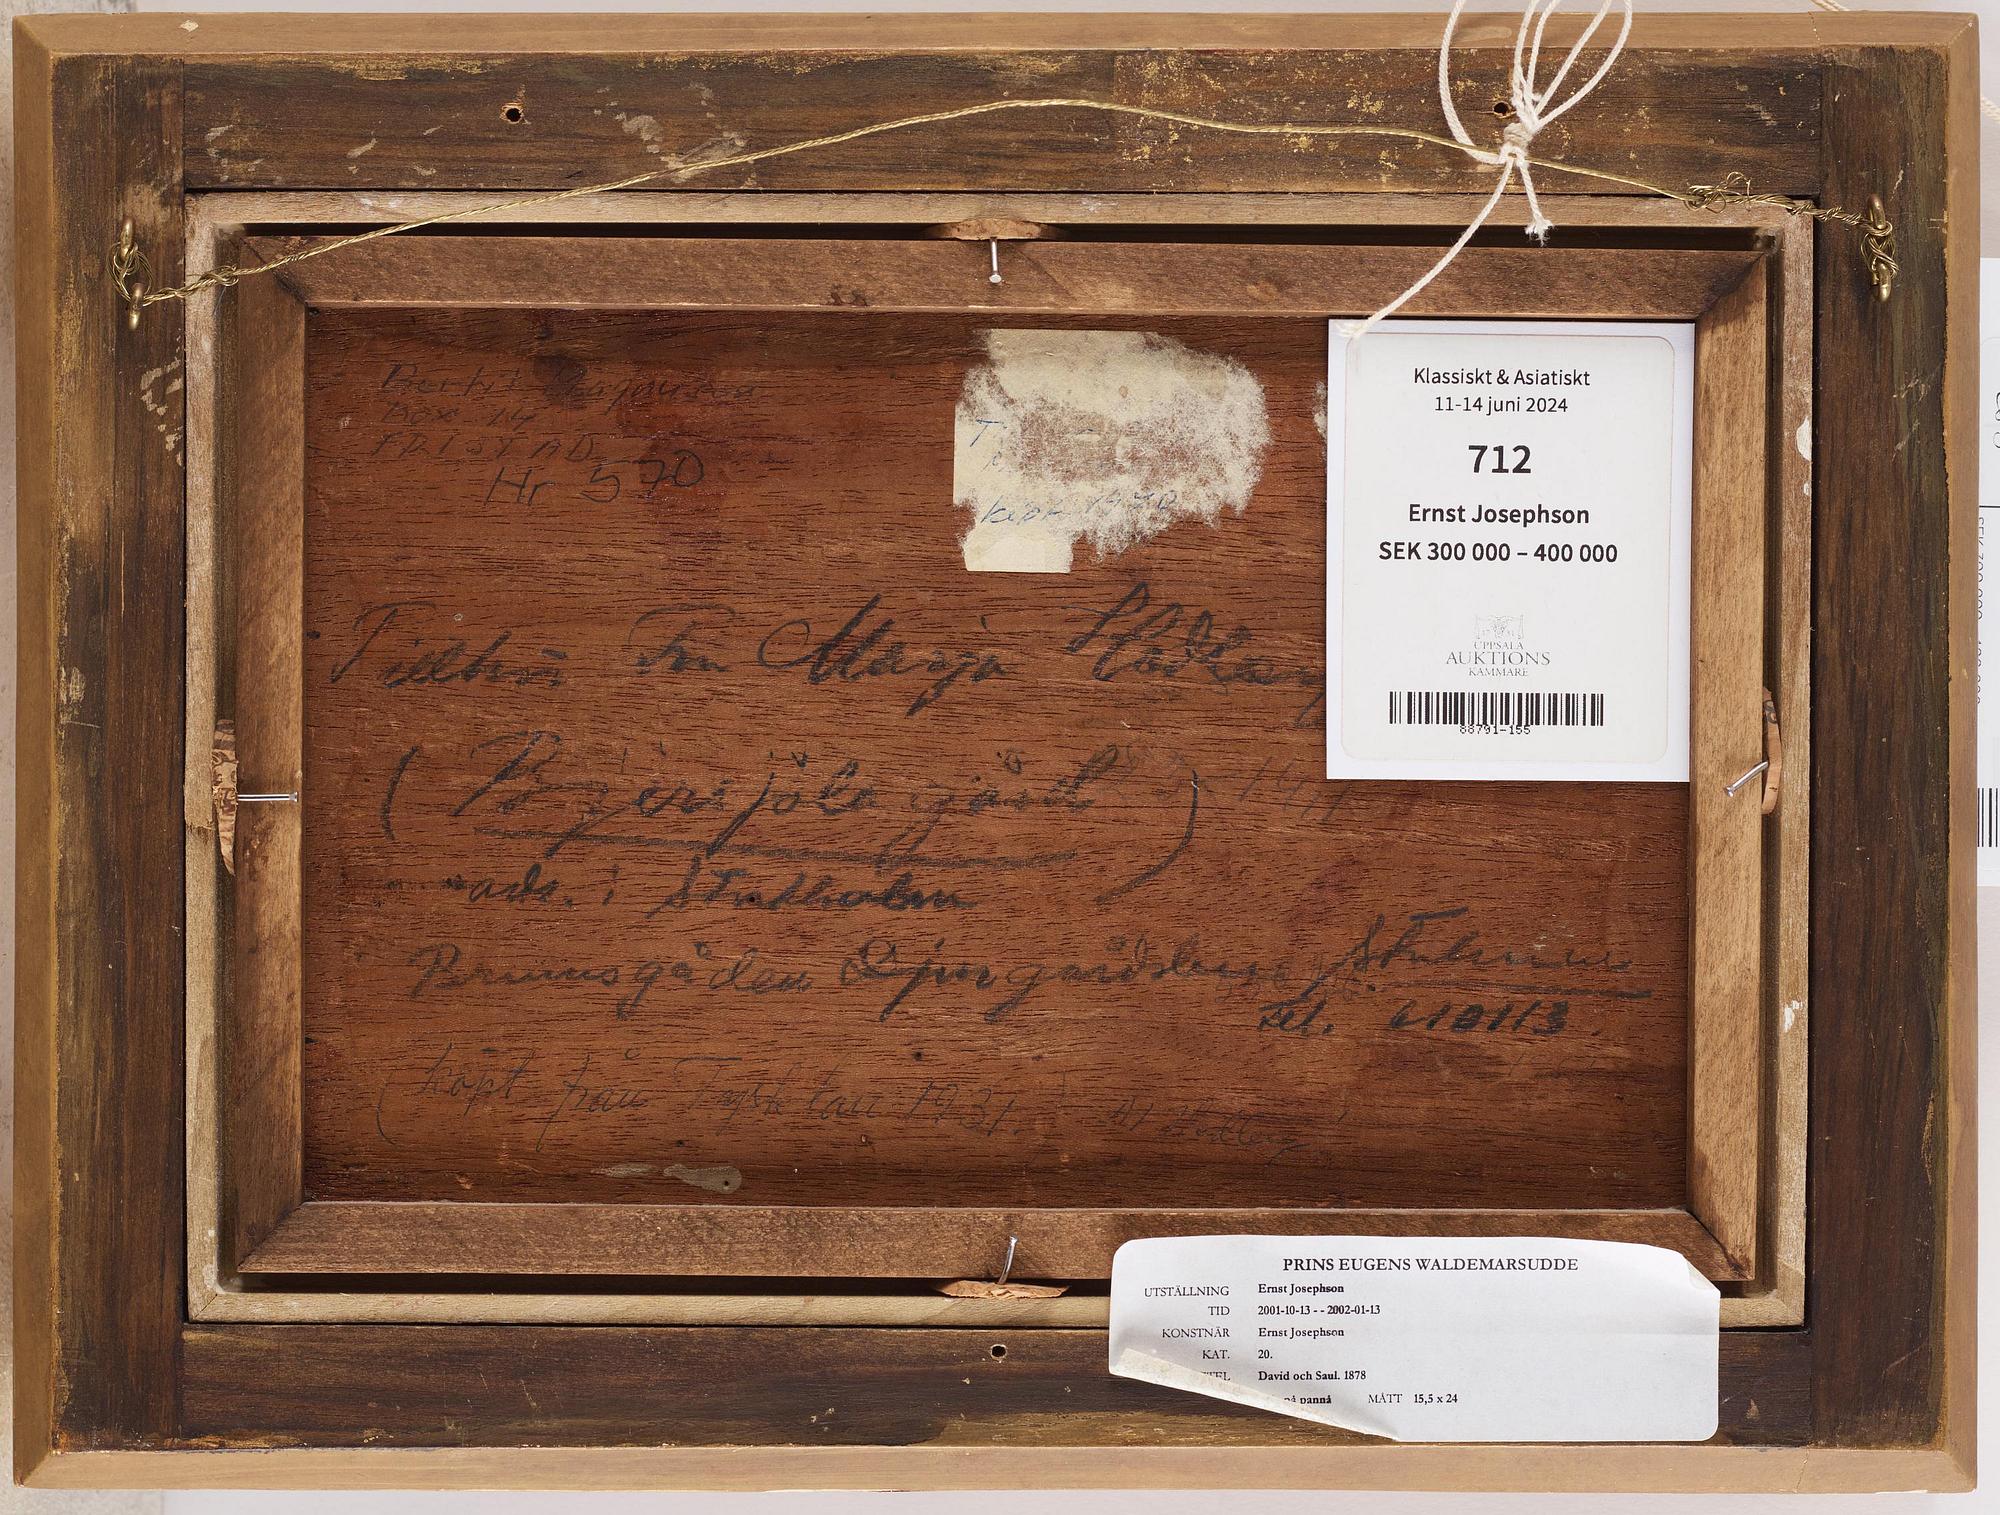 Box 14
FRISTAD
Nr 570
Köpt 1970
Tillhör Fru Marja
(Bjersjöla gård)
adr. i Stockholm
Brunnsgården Djurgårdsbrunn Stockholm
Tel. 610113.
(köpt från Tyskland 1931.)
Klassiskt & Asiatiskt
11-14 juni 2024
712
Ernst Josephson
SEK 300 000 – 400 000
UPPSALA
AUKTIONS
KAMMARE
88791-155
PRINS EUGENS WALDEMARSUDDE
UTSTÄLLNING Ernst Josephson
TID 2001-10-13 - - 2002-01-13
KONSTNÄR Ernst Josephson
KAT. 20.
David och Saul. 1878
på pannå MÅTT 15,5 x 24